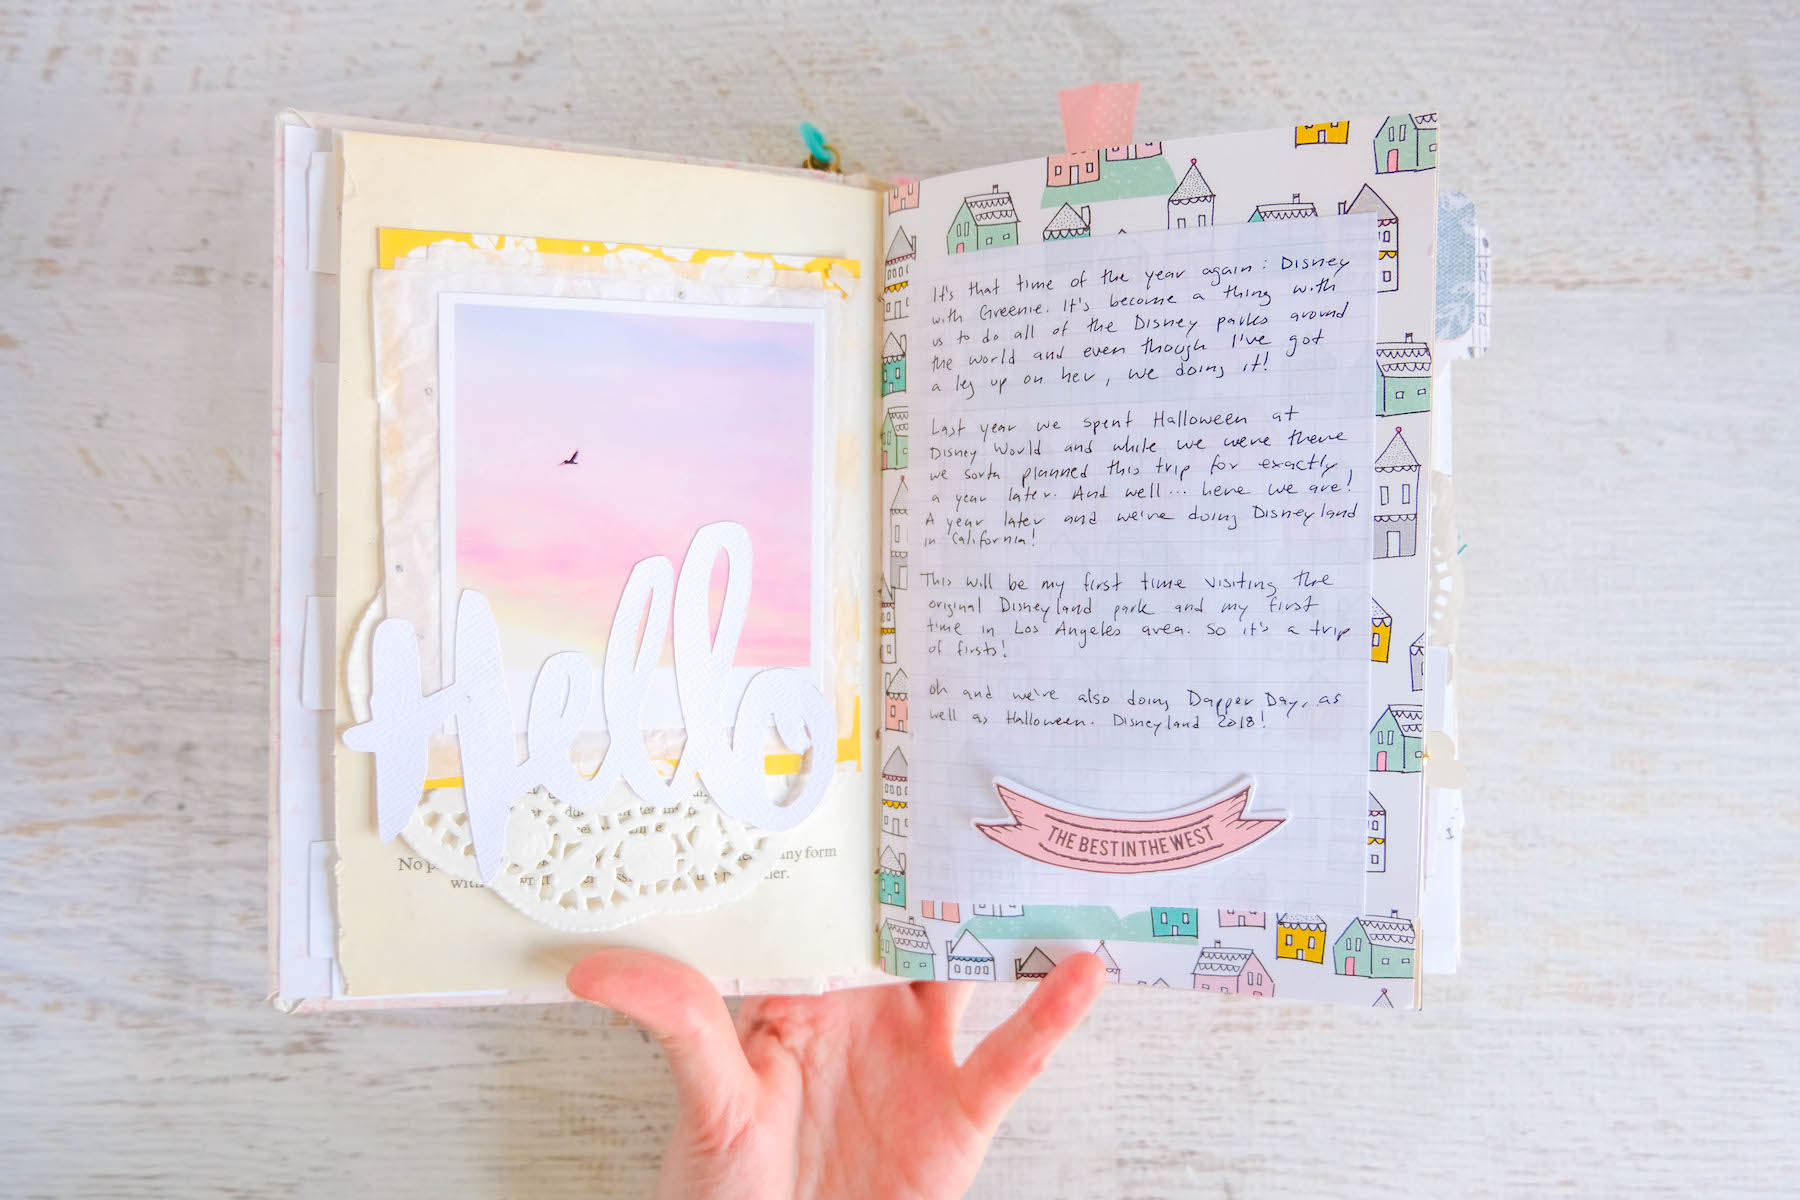 Hello
No
any form
with
her.
It's that time of the year again: Disney
with Greenie. It's become a thing with
us to do all of the Disney parks around
the world and even though I've got
a leg up on her, we doing it!
Last year we spent Halloween at
Disney World and while we were there
we sorta planned this trip for exactly
a year later. And well... here we are!
A year later and we're doing Disneyland
in California!
This will be my first time visiting the
original Disneyland park and my first
time in Los Angeles area. So it's a trip
of firsts!
Oh and we're also doing Dapper Day, as
well as Halloween. Disneyland 2018!
THE BEST IN THE WEST